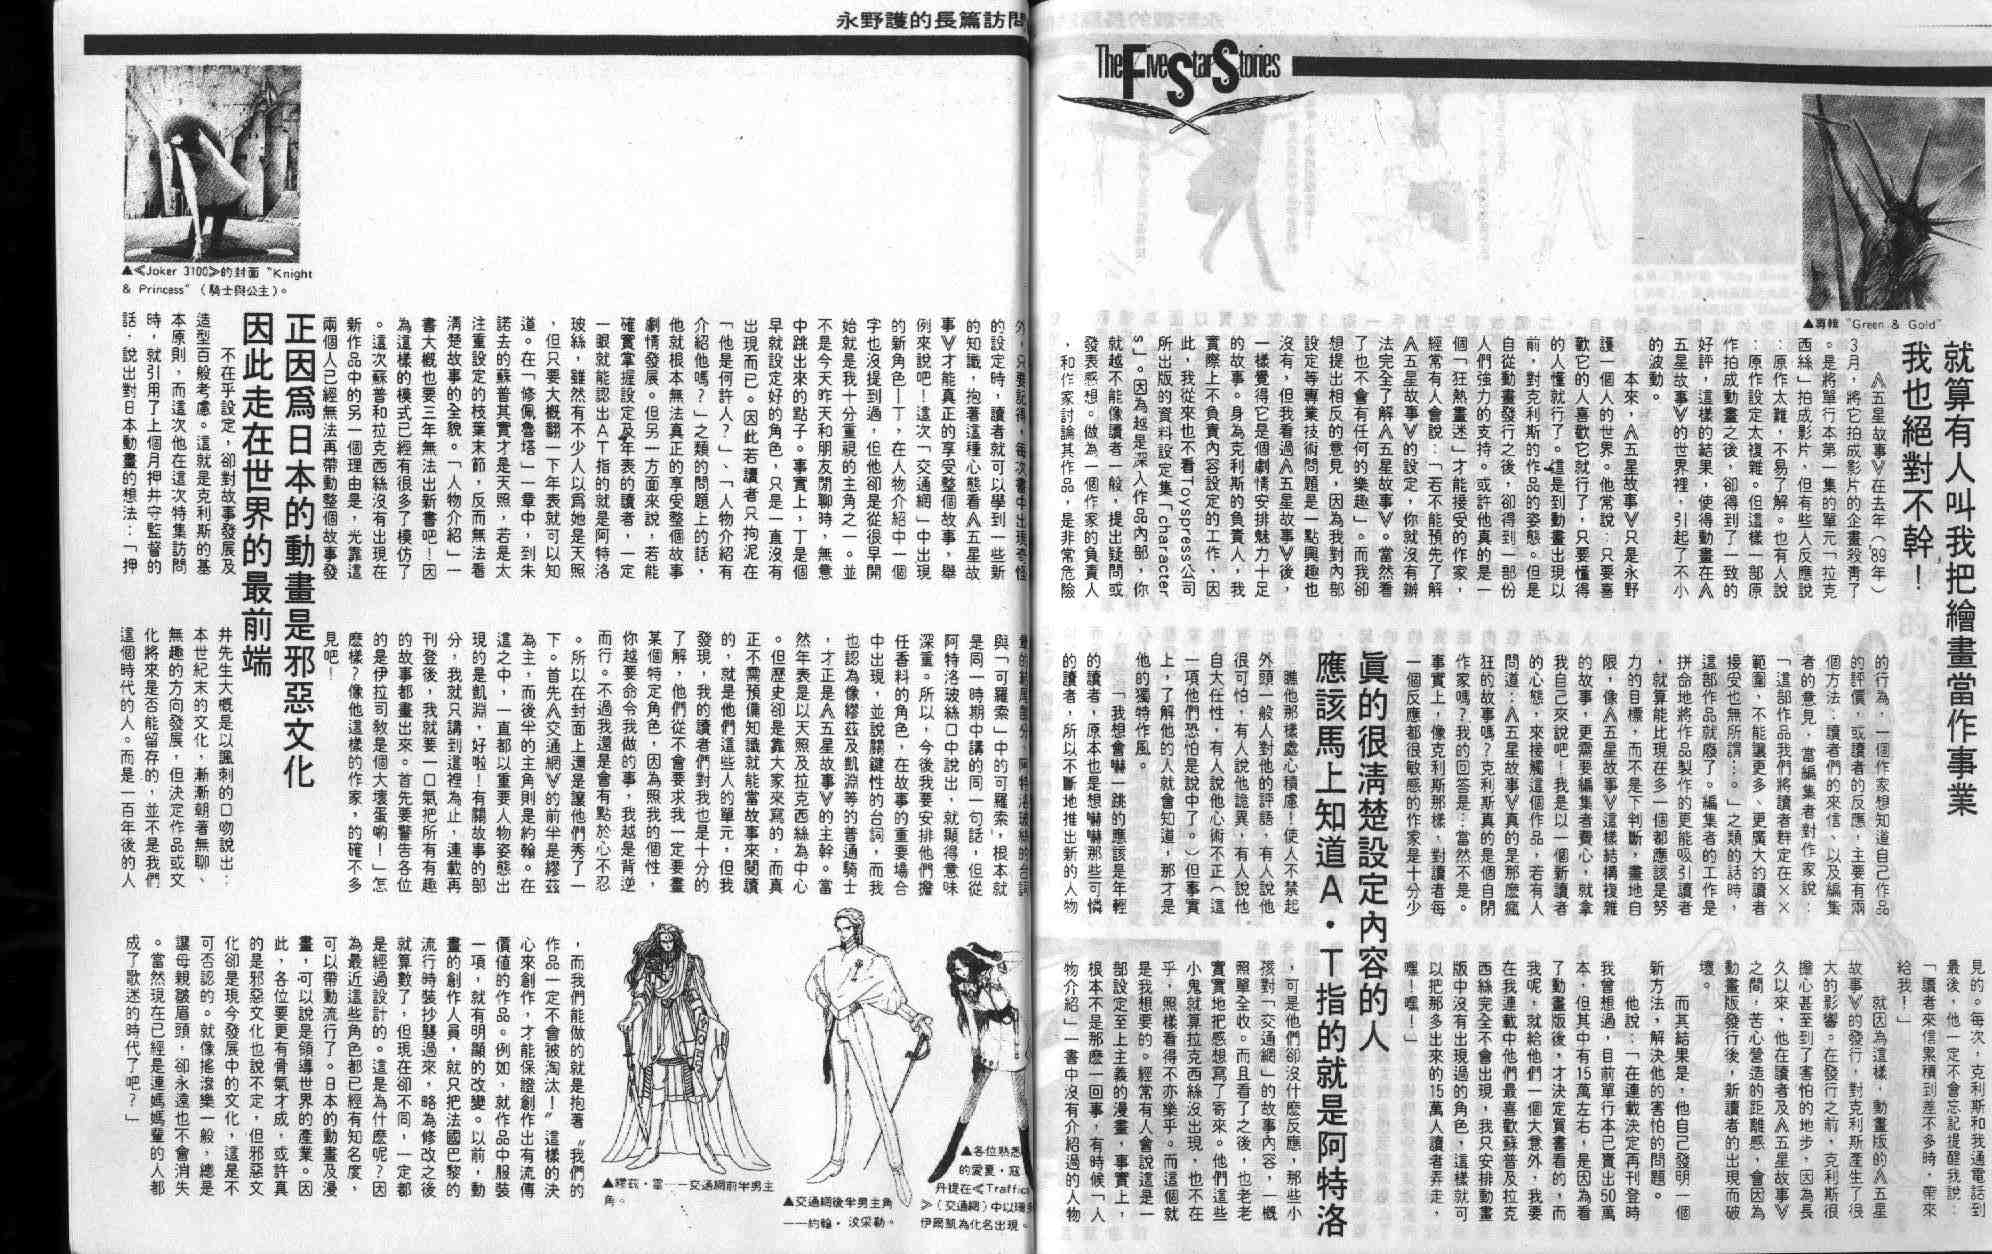 永野護的長篇訪問
The Five Star Stories
▲專輯“Green & Gold”
就算有人叫我把繪畫當作事業
我也絕對不幹！
《五星故事》在去年（'89年）
3月，將它拍成影片的企畫殺青了
。是將單行本第一集的單元「拉克
西絲」拍成影片，但有些人反應說
：原作太難，不易了解。也有人說
：原作設定太複雜。但這樣一部原
作拍成動畫之後，卻得到了一致的
好評，這樣的結果，使得動畫在《
五星故事》的世界裡，引起了不小
的波動。
本來，《五星故事》只是永野
護一個人的世界。他常說：只要喜
歡它的人喜歡它就行了，只要懂得
的人懂就行了。這是到動畫出現以
前，對克利斯的作品的姿態。但是
自從動畫發行之後，卻得到一部份
人們強力的支持。或許他真的是一
個「狂熱畫迷」才能接受的作家，
經常有人會說：「若不能預先了解
《五星故事》的設定，你就沒有辦
法完全了解《五星故事》。當然看
了也不會有任何的樂趣」。而我卻
想提出相反的意見，因為我對內部
設定等專業技術問題是一點興趣也
沒有，但我看過《五星故事》後，
一樣覺得它是個劇情安排魅力十足
的故事。身為克利斯的負責人，我
實際上不負責內容設定的工作，因
此，我從來也不看Toyspress公司
所出版的資料設定集「character
s」。因為越是深入作品內部，你
就越不能像讀者一般，提出疑問或
發表感想。做為一個作家的負責人
，和作家討論其作品，是非常危險
的行為，一個作家想知道自己作品
的評價，或讀者的反應，主要有兩
個方法：讀者們的來信、以及編集
者的意見，當編集者對作家說：
「這部作品我們將讀者群定在××
範圍，不能讓更多、更廣大的讀者
接受也無所謂：。」之類的話時，
這部作品就廢了。編集者的工作是
拼命地將作品製作的更能吸引讀者
，就算能比現在多一個都應該是努
力的目標，而不是下判斷，畫地自
限，像《五星故事》這樣結構複雜
的故事，更需要編集者費心，就拿
我自己來說吧！我是以一個新讀者
的心態，來接觸這個作品，若有人
問道：《五星故事》真的是那麼瘋
狂的故事嗎？克利斯真的是個自閉
作家嗎？我的回答是：當然不是。
事實上，像克利斯那樣，對讀者每
一個反應都很敏感的作家是十分少
見的。每次，克利斯和我通電話到
最後，他一定不會忘記提醒我說：
「讀者來信累積到差不多時，帶來
給我！」
就因為這樣，動畫版的《五星
故事》的發行，對克利斯產生了很
大的影響。在發行之前，克利斯很
擔心甚至到了害怕的地步，因為長
久以來，他在讀者及《五星故事》
之間，苦心營造的距離感，會因為
動畫版發行後，新讀者的出現而破
壞。
而其結果是，他自己發明一個
新方法，解決他的害怕的問題。
他說：「在連載決定再刊登時
我曾想過，目前單行本已賣出50萬
本，但其中有15萬左右，是因為看
了動畫版後，才決定買書看的，而
我呢，就給他們一個大意外，我要
在我連載中他們最喜歡蘇普及拉克
西絲完全不會出現，我只安排動畫
版中沒有出現過的角色，這樣就可
以把那多出來的15萬人讀者弄走，
嘿！嘿！」
真的很清楚設定內容的人
應該馬上知道A·T指的就是阿特洛
瞧他那樣處心積慮！使人不禁起
外頭一般人對他的評語，有人說他
很可怕，有人說他詭異，有人說他
自大任性，有人說他心術不正（這
一項他們恐怕是說中了。）但事實
上，了解他的人就會知道，那才是
他的獨特作風。
「我想會嚇一跳的應該是年輕
的讀者，原本也是想嚇嚇那些可憐
的讀者，所以不斷地推出新的人物
，可是他們卻沒什麼反應，那些小
孩對「交通網」的故事內容，一概
照單全收。而且看了之後，也老老
實實地把感想寫了寄來。他們這些
小鬼就算拉克西絲沒出現，也不在
乎，照樣看得不亦樂乎。而這個就
是我想要的。經常有人會說這是一
部設定至上主義的漫畫，事實上，
根本不是那麼一回事，有時候「人
物介紹」一書中沒有介紹過的人物
的設定時，讀者就可以學到一些新
的知識，抱著這種心態看《五星故
事》才能真正的享受整個故事，舉
例來說吧！這次「交通網」中出現
的新角色—丁，在人物介紹中一個
字也沒提到過，但他卻是從很早開
始就是我十分重視的主角之一。並
不是今天昨天和朋友閒聊時，無意
中跳出來的點子。事實上，丁是個
早就設定好的角色，只是一直沒有
出現而已。因此若讀者只拘泥在
「他是何許人？」、「人物介紹有
介紹他嗎？」之類的問題上的話，
他就根本無法真正的享受整個故事
劇情發展。但另一方面來說，若能
確實掌握設定及年表的讀者，一定
一眼就能認出AT指的就是阿特洛
玻絲，雖然有不少人以為她是天照
，但只要大概翻一下年表就可以知
道。在「修佩魯塔」一章中，到朱
諾去的蘇普其實才是天照，若是太
注重設定的枝葉末節，反而無法看
清楚故事的全貌。「人物介紹」一
書大概也要三年無法出新書吧！因
為這樣的模式已經有很多了模仿了
。這次蘇普和拉克西絲沒有出現在
新作品中的另一個理由是，光靠這
兩個人已經無法再帶動整個故事發
與「可羅索」中的可羅索，根本就
是同一時期中講的同一句話，但從
阿特洛玻絲口中說出，就顯得意味
深重。所以，今後我要安排他們擔
任香料的角色，在故事的重要場合
中出現，並說關鍵性的台詞，而我
也認為像繆茲及凱淵等的普通騎士
，才正是《五星故事》的主幹。當
然年表是以天照及拉克西絲為中心
。但歷史卻是靠大家來寫的，而真
正不需預備知識就能當故事來閱讀
的，就是他們這些人的單元，但我
發現，我的讀者們對我也是十分的
了解，他們從不會要求我一定要畫
某個特定角色，因為照我的個性，
你越要命令我做的事，我越是背逆
而行。不過我還是會有點於心不忍
。所以在封面上還是讓他們秀了一
下。首先《交通網》的前半是繆茲
為主，而後半的主角則是約翰。在
這之中，一直都以重要人物姿態出
現的是凱淵，好啦！有關故事的部
分，我就只講到這裡為止，連載再
刊登後，我就要一口氣把所有有趣
的故事都畫出來。首先要警告各位
的是伊拉司教是個大壞蛋喲！」怎
麼樣？像他這樣的作家，的確不多
見吧！
▲《Joker 3100》的封面“Knight
& Princess”（騎士與公主）。
正因為日本的動畫是邪惡文化
因此走在世界的最前端
不在乎設定，卻對故事發展及
造型百般考慮。這就是克利斯的基
本原則，而這次他在這次特集訪問
時，就引用了上個月押井守監督的
話．說出對日本動畫的想法：「押
井先生大概是以諷刺的口吻說出：
本世紀末的文化，漸漸朝著無聊、
無趣的方向發展，但決定作品或文
化將來是否能留存的，並不是我們
這個時代的人。而是一百年後的人
，而我們能做的就是抱著〝我們的
作品一定不會被淘汰！〞這樣的決
心來創作，才能保證創作出有流傳
價值的作品。例如，就作品中服裝
一項，就有明顯的改變。以前，動
畫的創作人員，就只把法國巴黎的
流行時裝抄襲過來，略為修改之後
就算數了，但現在卻不同，一定都
是經過設計的。這是為什麼呢？因
為最近這些角色都已經有知名度，
可以帶動流行了。日本的動畫及漫
畫，可以說是領導世界的產業。因
此，各位要更有骨氣才成，或許真
的是邪惡文化也說不定，但邪惡文
化卻是現今發展中的文化，這是不
可否認的。就像搖滾樂一般，總是
讓母親皺眉頭，卻永遠也不會消失
。當然現在已經是連媽媽輩的人都
成了歌迷的時代了吧？」
▲各位熟悉
的愛夏·寇
丹提在《Traffic
》（交通網）中以瑪
伊爾凱為化名出現。
▲交通網後半男主角
——約翰·汶采勒。
▲繆茲·雷——交通網前半男主
角。